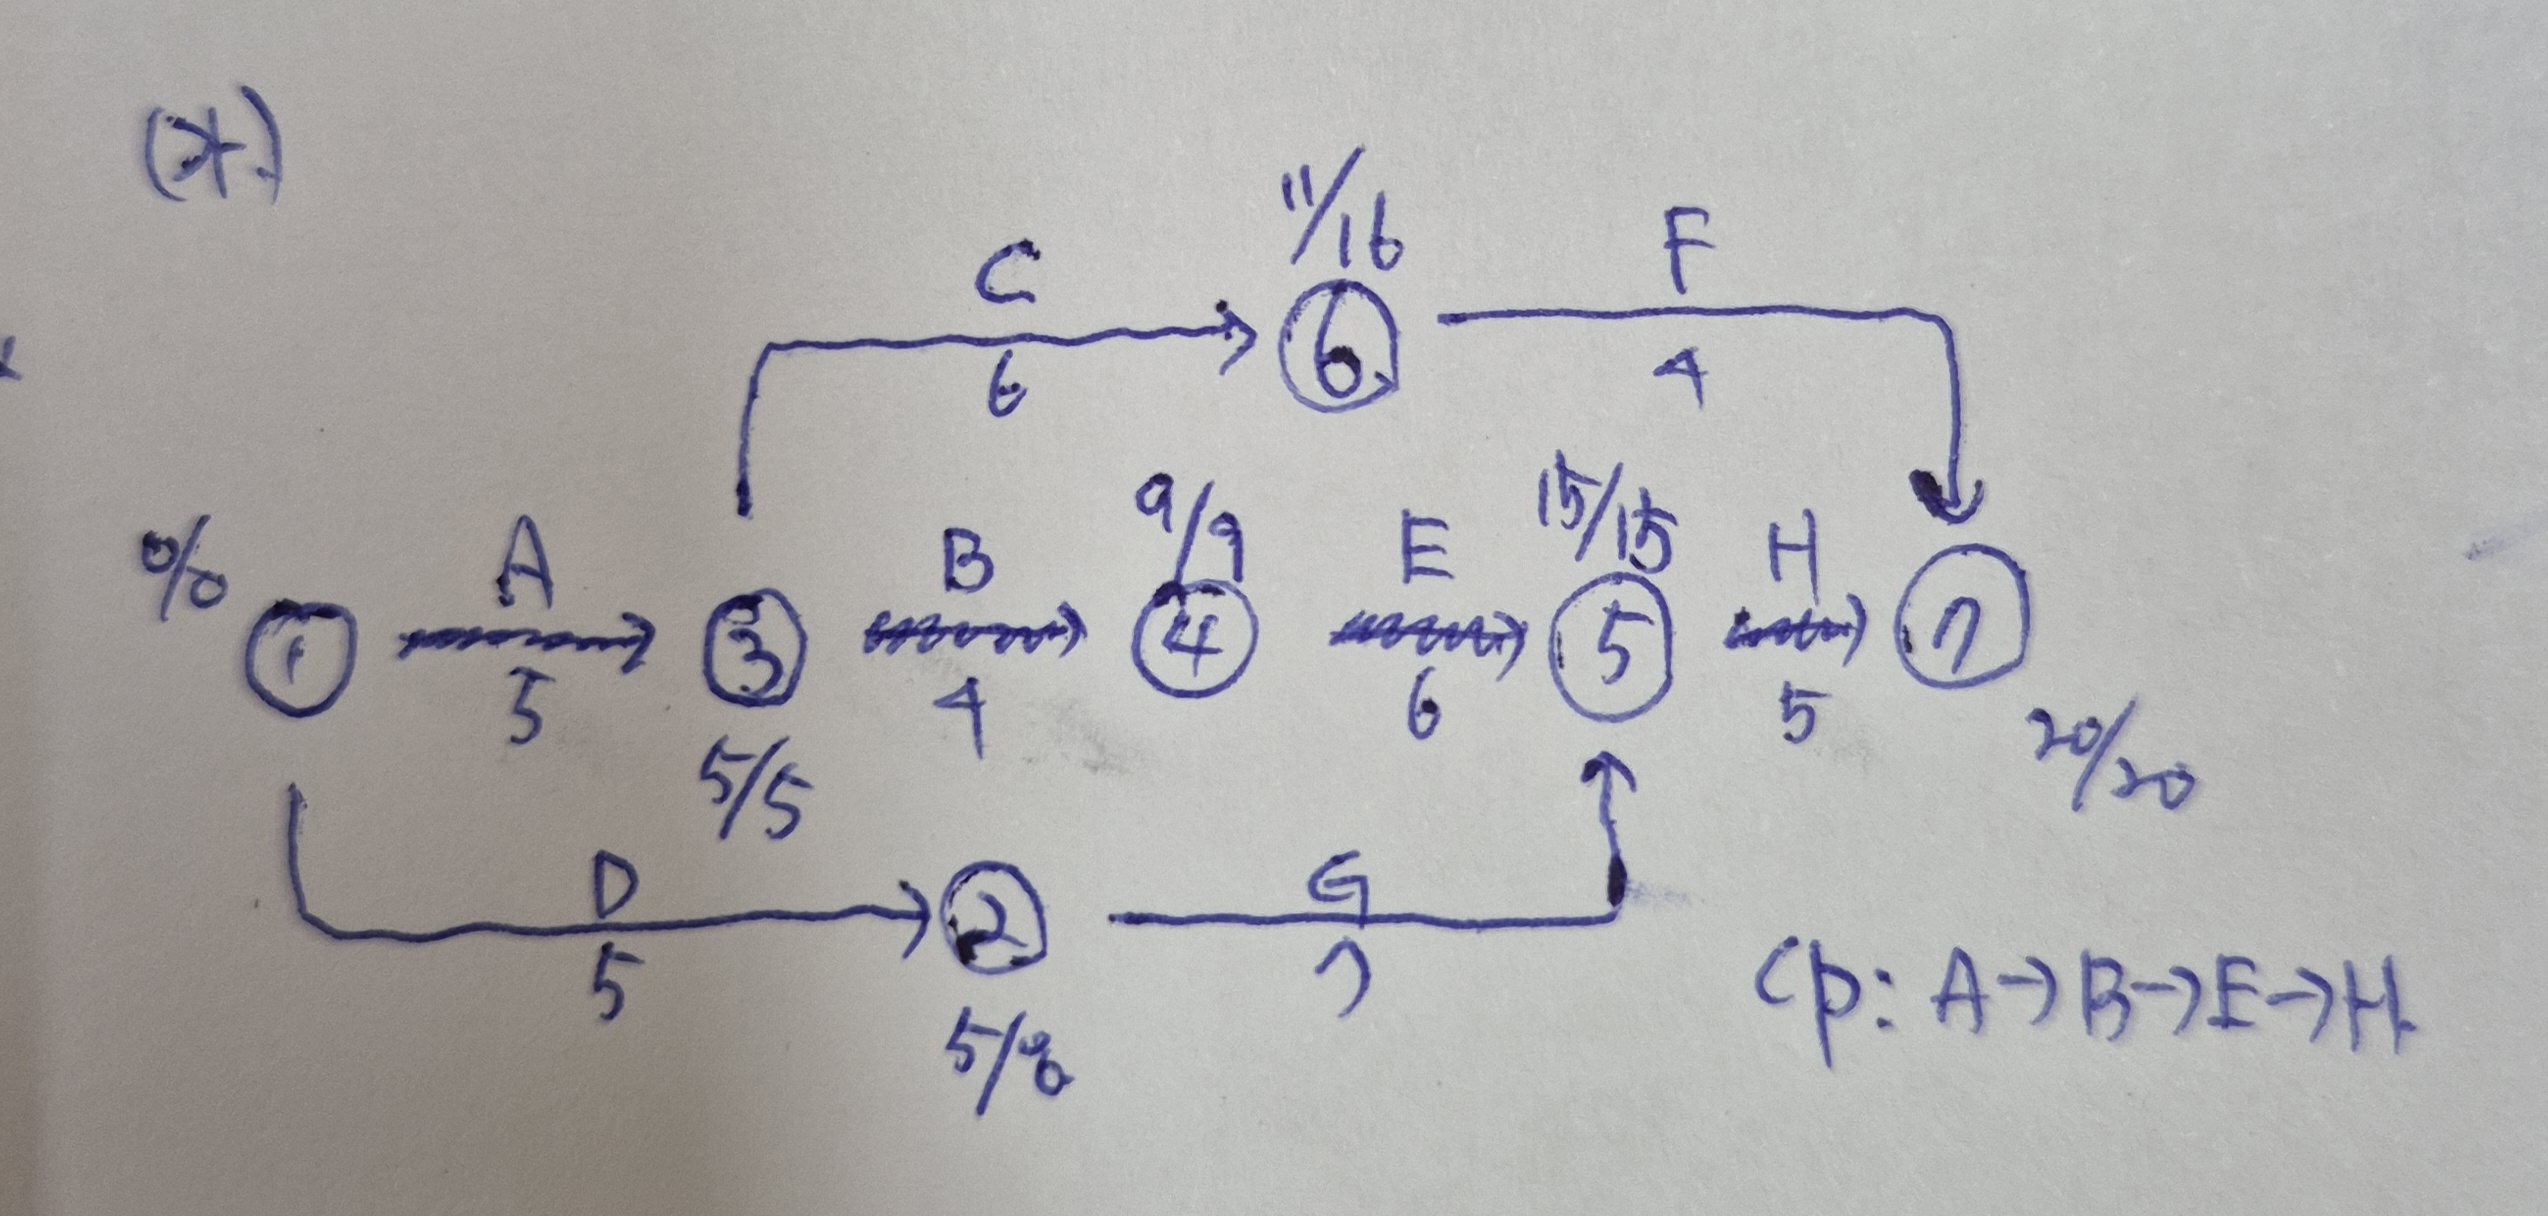 (X)
11/16
C F
⑥
6 4
9/9 15/15
0/0 A B E H
① ③ ④ ⑤ ⑦
5 4 6 5
5/5 20/20
D G
②
5 7
5/8
CP: A→B→E→H